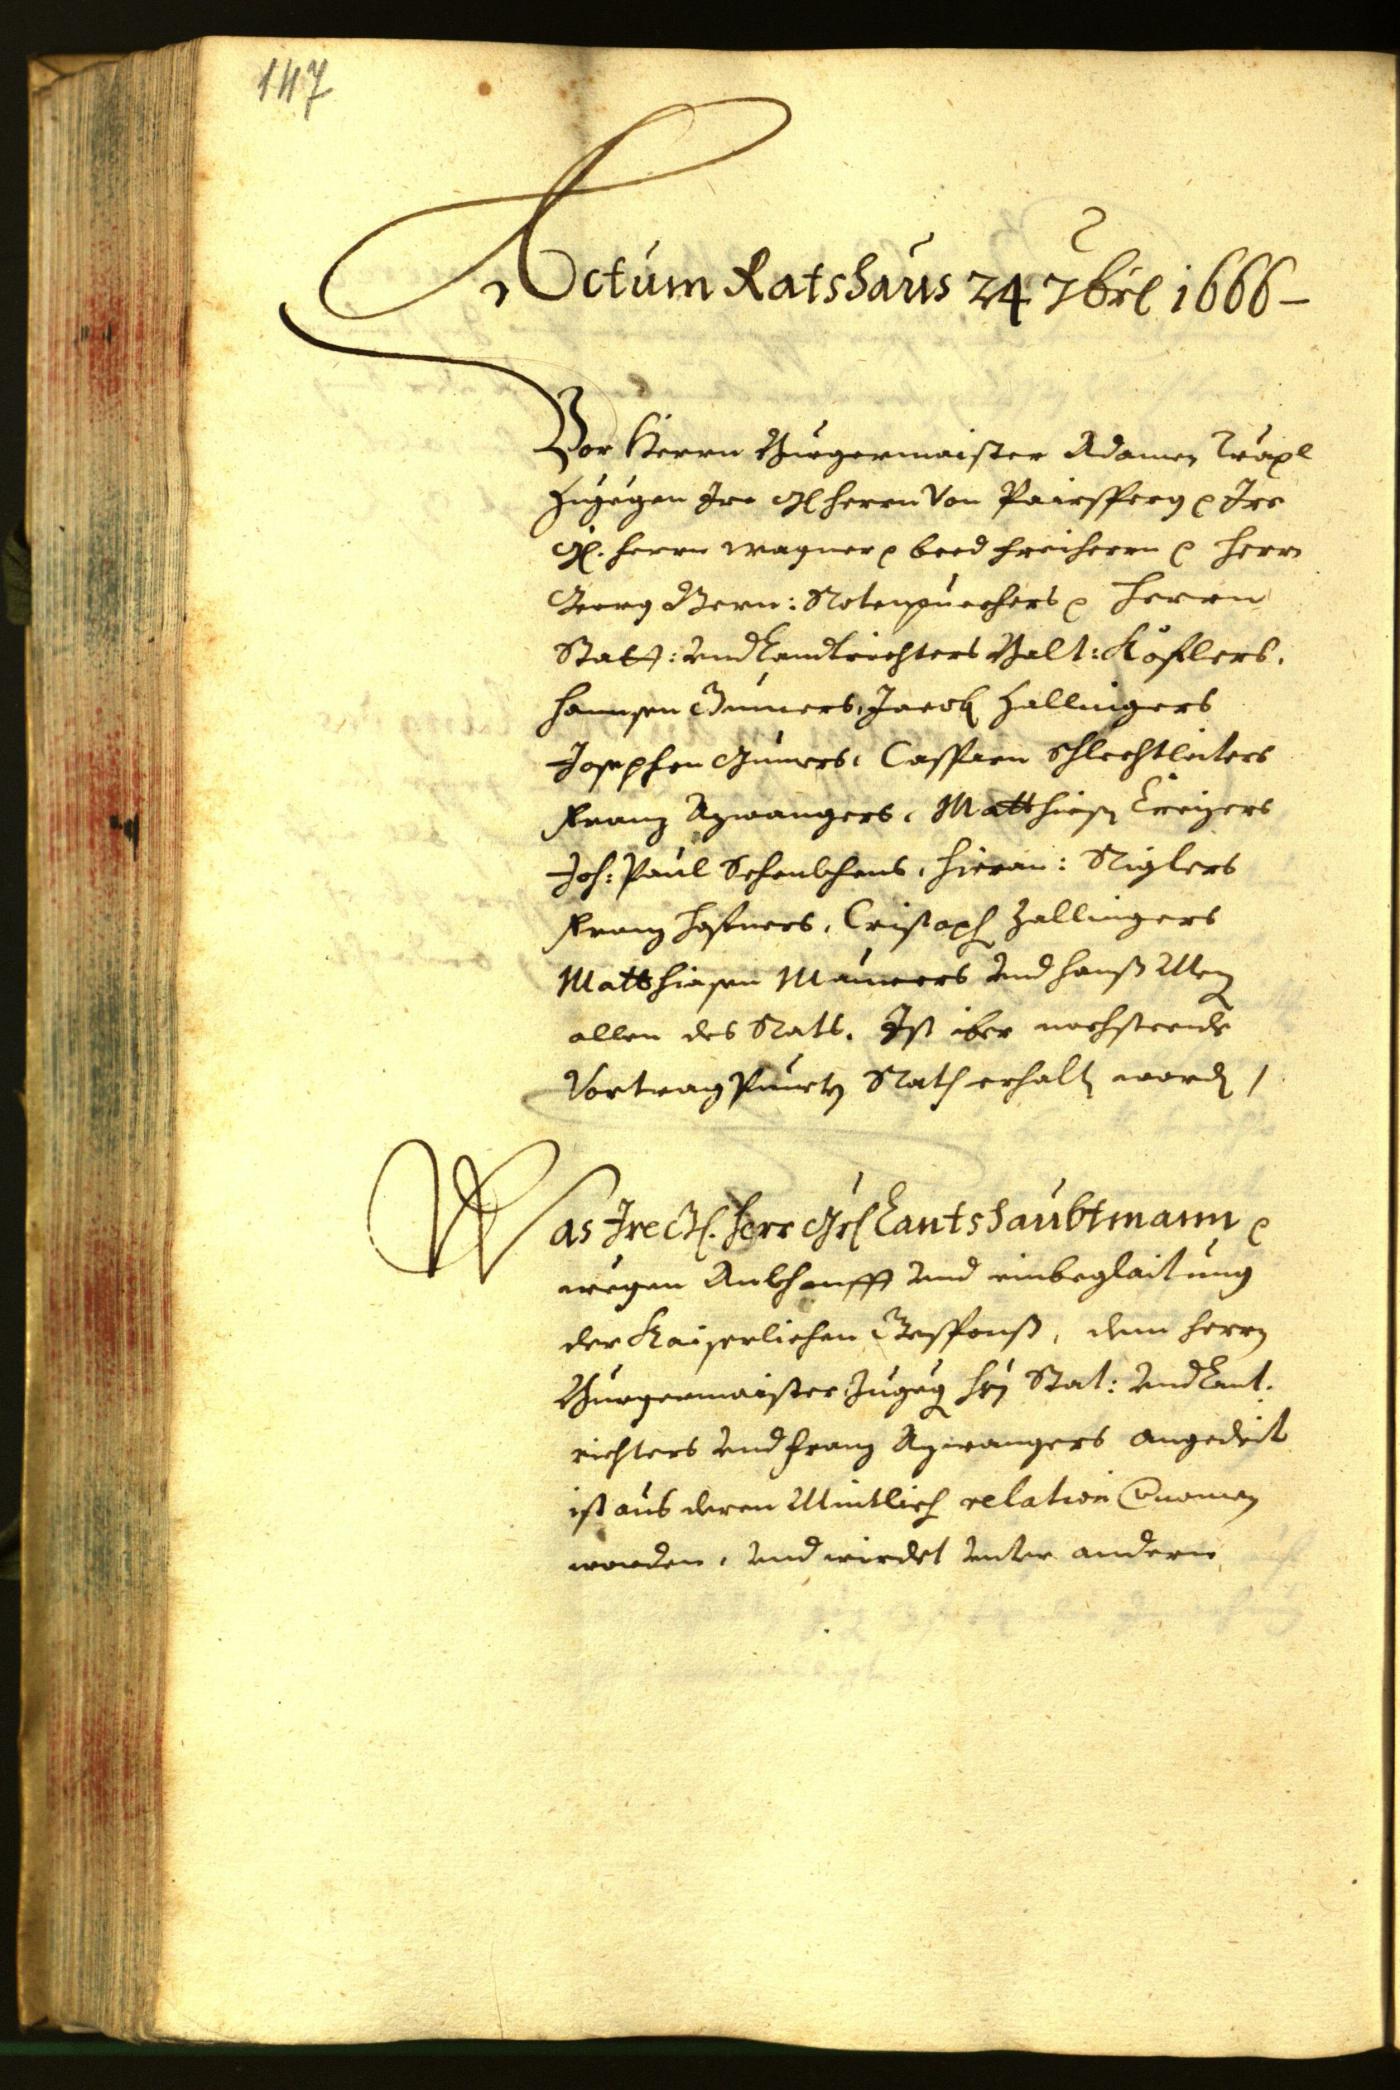 147
Actum Ratshaus 24 7bris 1666 –
Vor Herrn Burgermaister Adamen Träpl
Zugegen Ire Gl herrn Von Pairsperg Ire
Gl. herrn Wagner beed freiherrn herrn
Georg Bern: Rotenpuechers herrn
Statt: und Landtrichters Balt: Köflers,
Hannsen Gumers, Jacob Zallingers
Josephen Gumers, Casparn Schlechtleiters
Franz Azwangers, Matthiesen Creizers
Joh: Paul Schenkhens, Hieron: Riglers
Franz Hafners, Cristoph Zallingers
Matthiasen Maurers und Hanß
allen des Rats. Ist iber nachsteende
Vortrag Puncten Rath erhalten worden /
Was Ire Gl. herr Grf Lantshaubtmann
wegen Ankhonfft und einbeglaitung
der Kaiserlichen Gesponß, dem herrn
Burgermaister Zugegen hrn Stat: und Lant.
richters und Franz Azwangers angedeit
ist aus deren Mintlich relation vernomen
worden, und wirdet unter andern